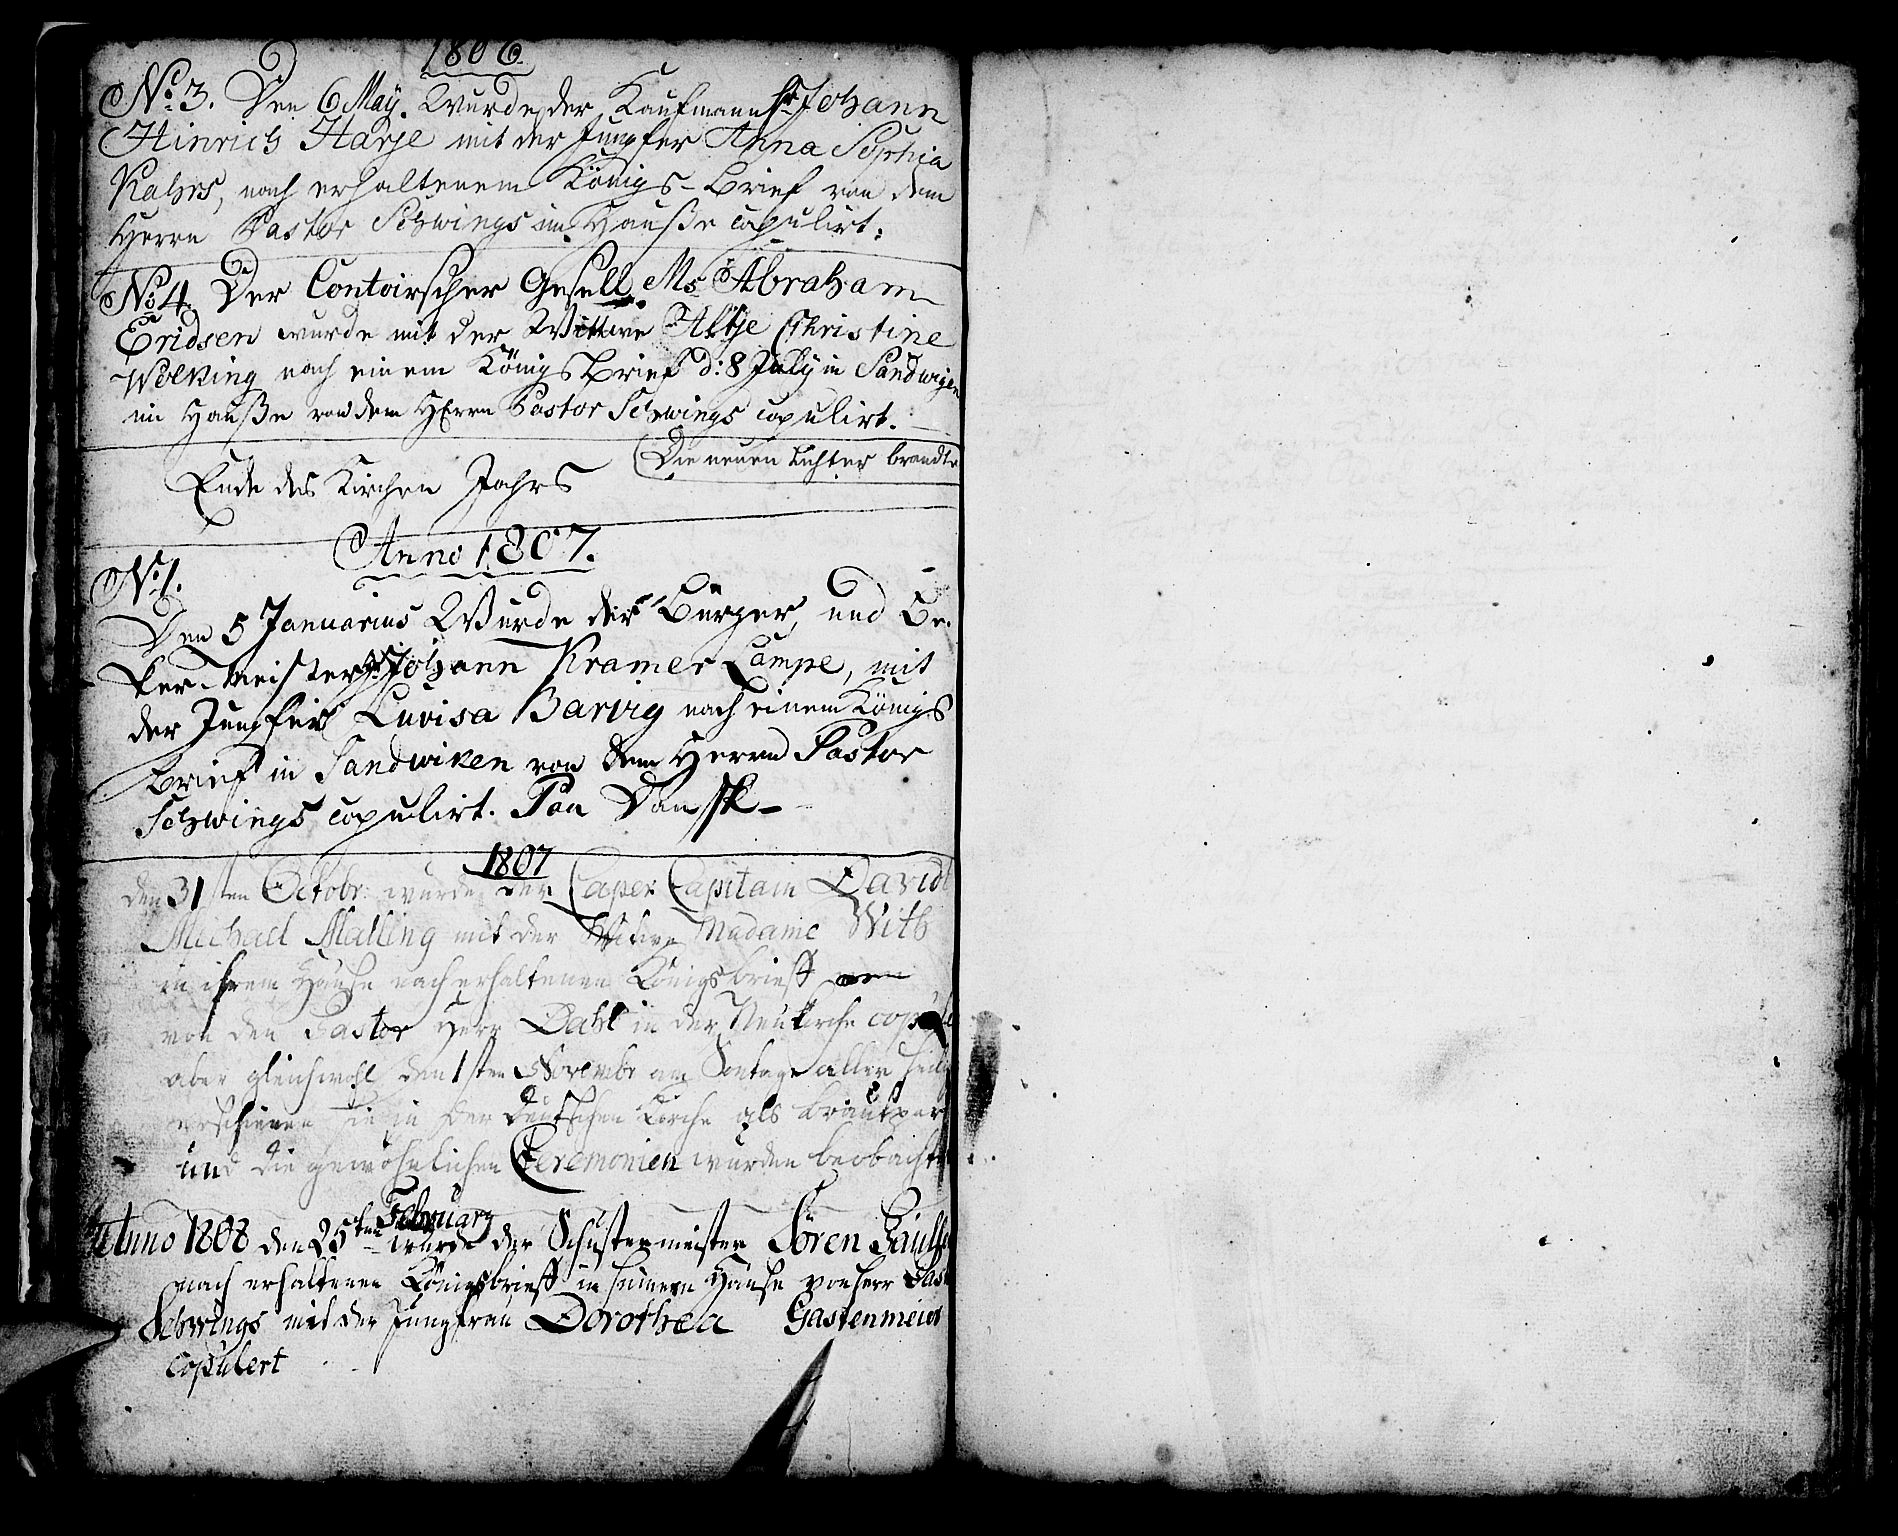 1806
No 3. Den 6 Maÿ. Wurde der Kaufmann Hr Johann
Hinrich Harje mit der Jungfer Anna Sophia
Kahrs, nach erhaltenem Königs-Brief von dem
Herrn Pastor Schwings im Hauße copulirt.
No 4. Der Contoirscher Gesell Ms Abraham
Eridsen wurde mit der Wittwe Altje Christine
Wolking nach einem Königs Brief d: 8 July in Sandwigen
im Hauße von dem Herrn Pastor Schwings copulirt.
(Die neuen Lichter brandte
Ende des Kirchen Jahrs
Anno 1807.
No 1.
Den 5 Januarius Wurde der Bürger, und Be-
ker-Meister Hr Johann Kramer Lampe, mit
der Jungfer Luvisa Barvig nach einem Königs
Brief in Sandwiken von dem Herrn Pastor
Schwings copulirt. Paa Dansk-
1807
den 31sten Octobr: wurde der Caper Capitain David
Michael Malling mit der Witwe Madame With
in ihrem Hause nach erhaltenen Königsbrieff
von den Pastor Herr Dahl in der Neukirche copul
aber gleichwohl den 1sten Novembr am Sontage aller Heili
erschienen sie in der Deutschen Kirche als Brautpar
und die gewöhnlichen Ceremonien wurden beobacht
Anno 1808 den 25ten February wurde der Schustermeister Sören
nach erhaltenen Königsbrieff in seinem Hause von Herr Past
Schwings mit der Jungfrau Dorothea Gastenmeier
Copulert